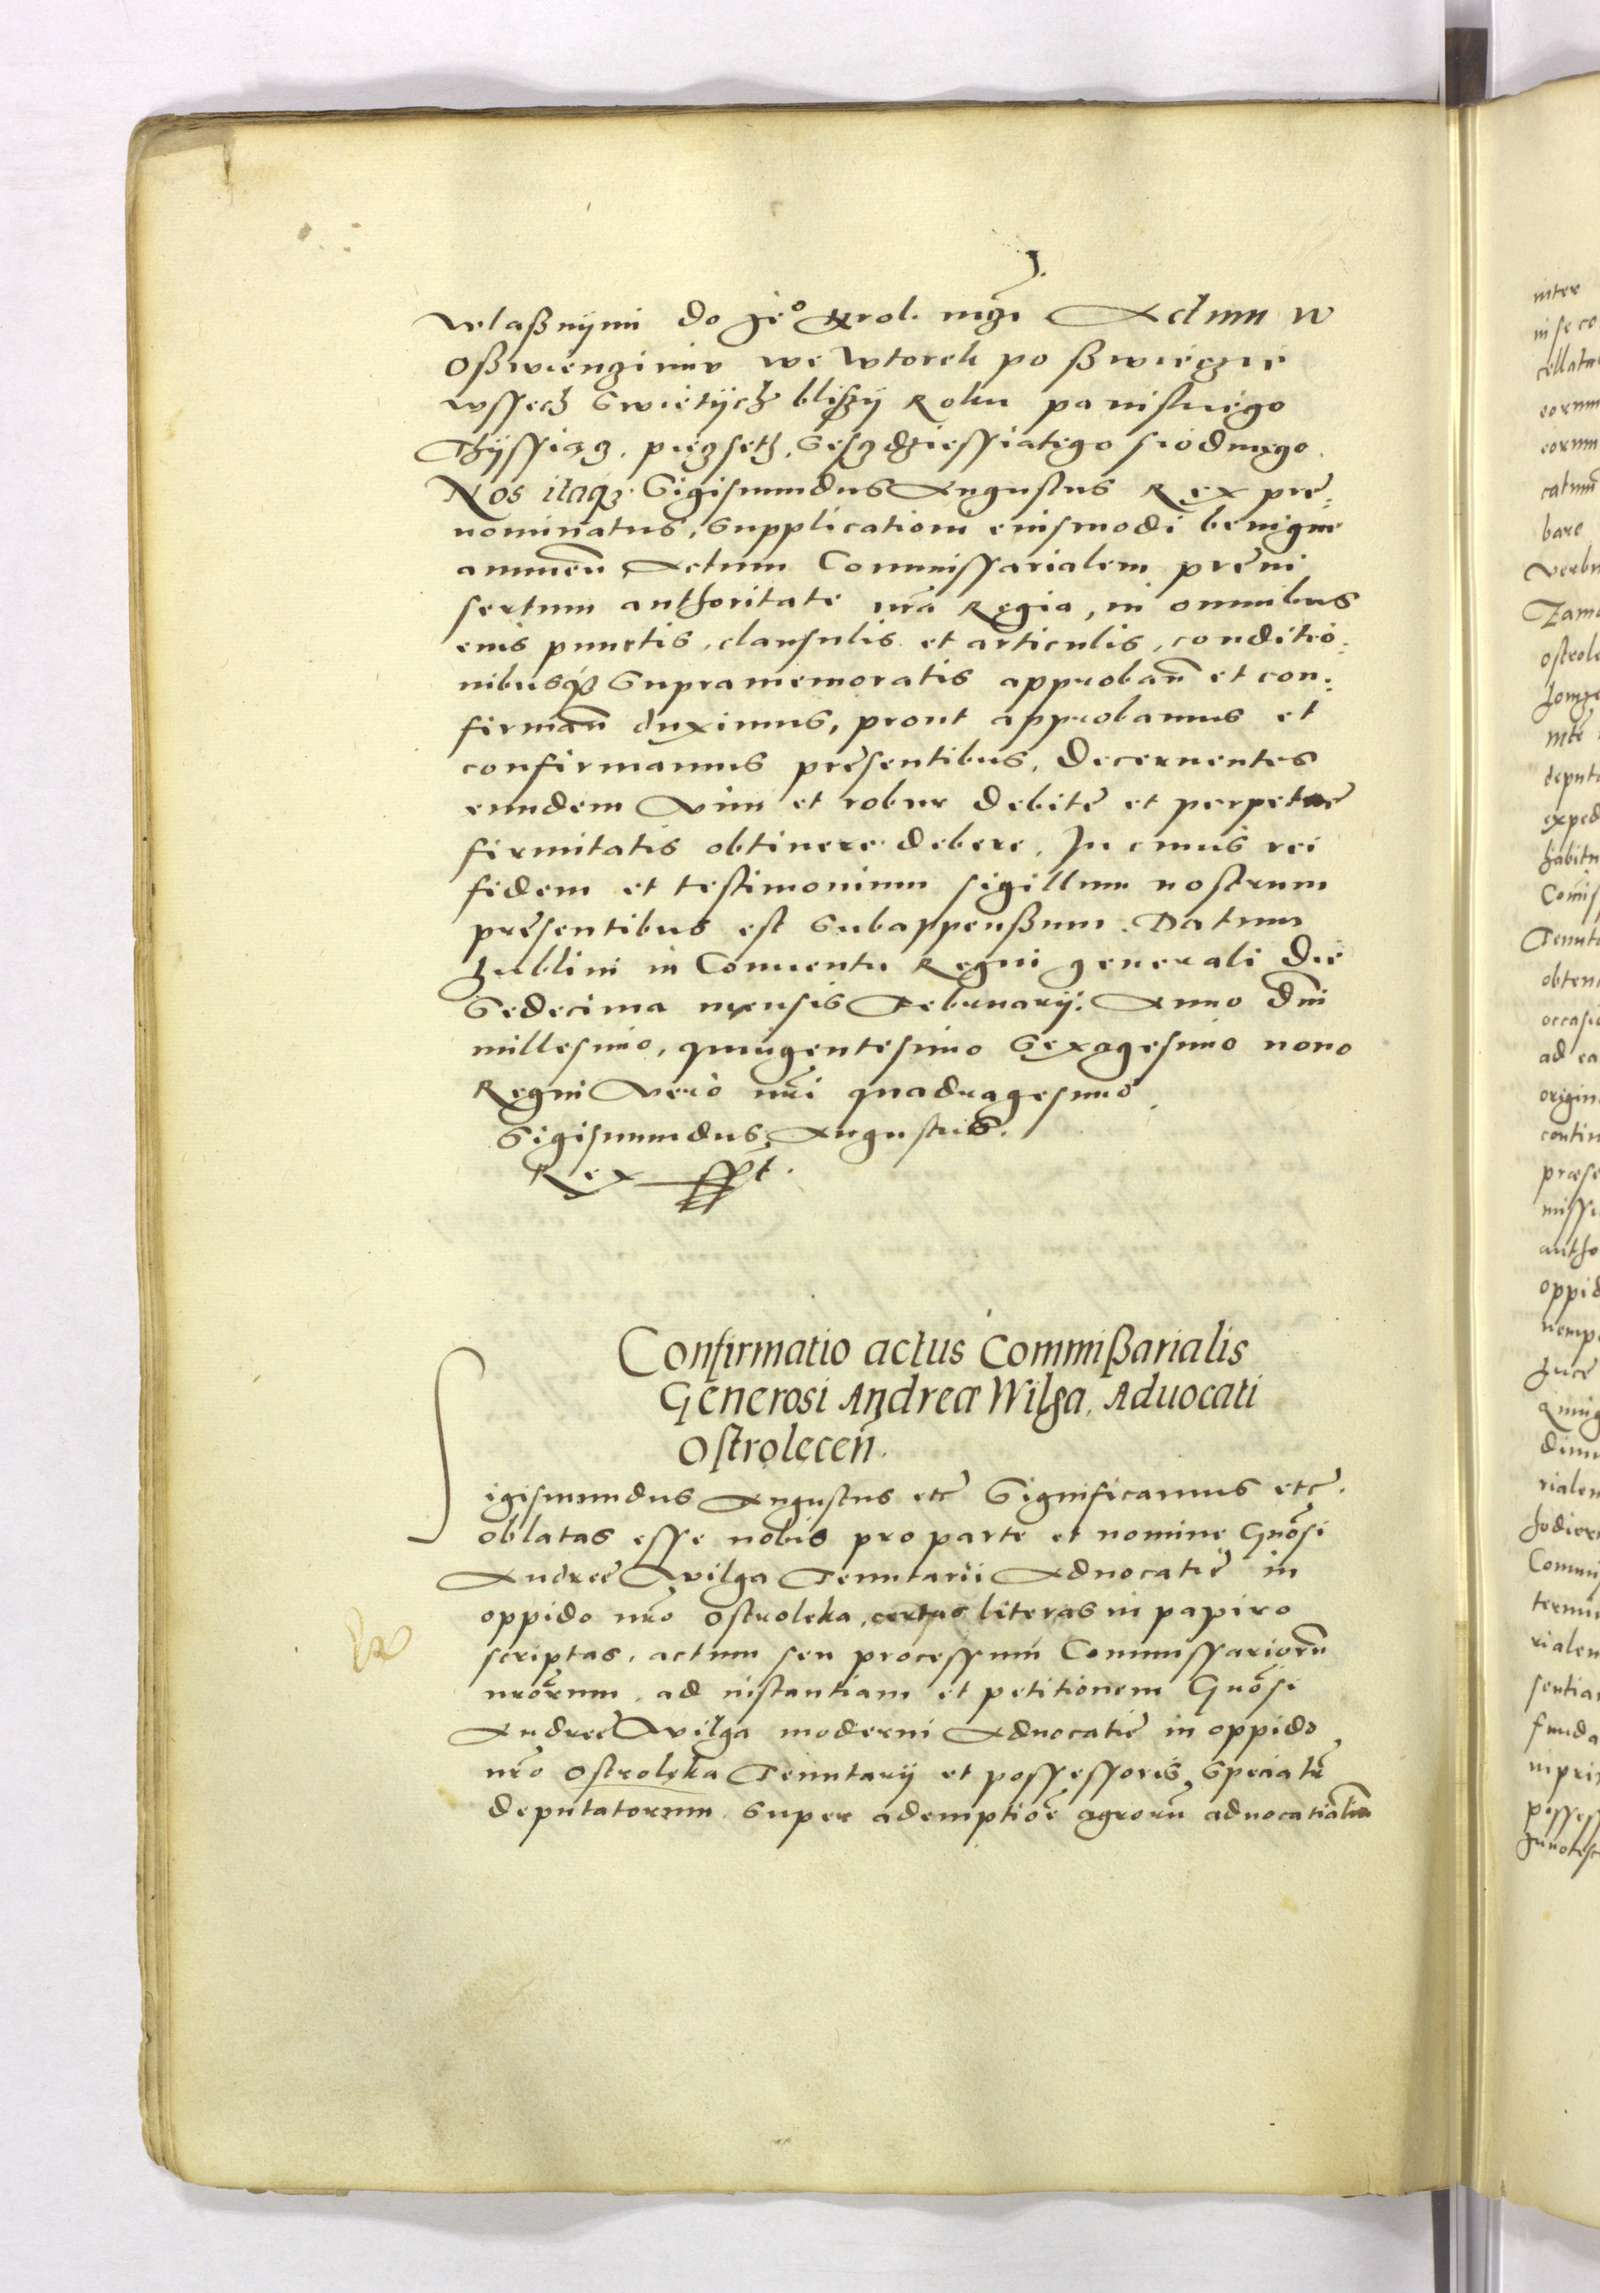 własnÿmi do Je° Krol. mczi Actum w
Oßwienzimiv we wtorek po ßwięczie
wssech Swiętÿch bliszÿ Roku paniskiego
Thÿssiącz, pięczseth, Seschdziessiatego siodmego.
Nos itaq Sigismundus Augustus Rex pre:
nominatus, Supplicationi eiusmodi benigne
annuen Actum Commissarialem preni
sertum authoritate nra Regia, in omnibus
eius punctis, clausulis et articulis, conditio:
nibusq Supramemoratis approban et con:
firman duximus, prout approbamus et
confirmamus presentibus, Decernentes
eundem Vim et robur debite et perpetue
firmitatis obtinere debere, In cuius rei
fidem et testimonium sigillum nostrum
presentibus est Subappensum. Datum
Lublini in Conuentu Regni generali die
Sedecima mensis Februarij. Anno dni
millesimo, quingentesimo Sexagesimo nono
Regni Vero nri quadragesimo
Sigismundus Augustus.
Rex sspt.
Confirmatio actus Commißarialis
Generosi Andreæ Wilga, Aduocati
Ostrolecen.
Sigismundus Augustus etc Significamus etc.
oblatas esse nobis pro parte et nomine Gnosi
Andree Wilga Tenutarii Aduocatie in
oppido nro Ostroleka, certas literas in papiro
scriptas, actum seu processum Commissarioru
nrorum, ad instantiam et petitionem Gnosi
Andree Wilga moderni Aduocatie in oppido
nro Ostroleka Tenutarij et possessoris, Specialr
deputatorum Super ademptioe agroru aduocatialiu